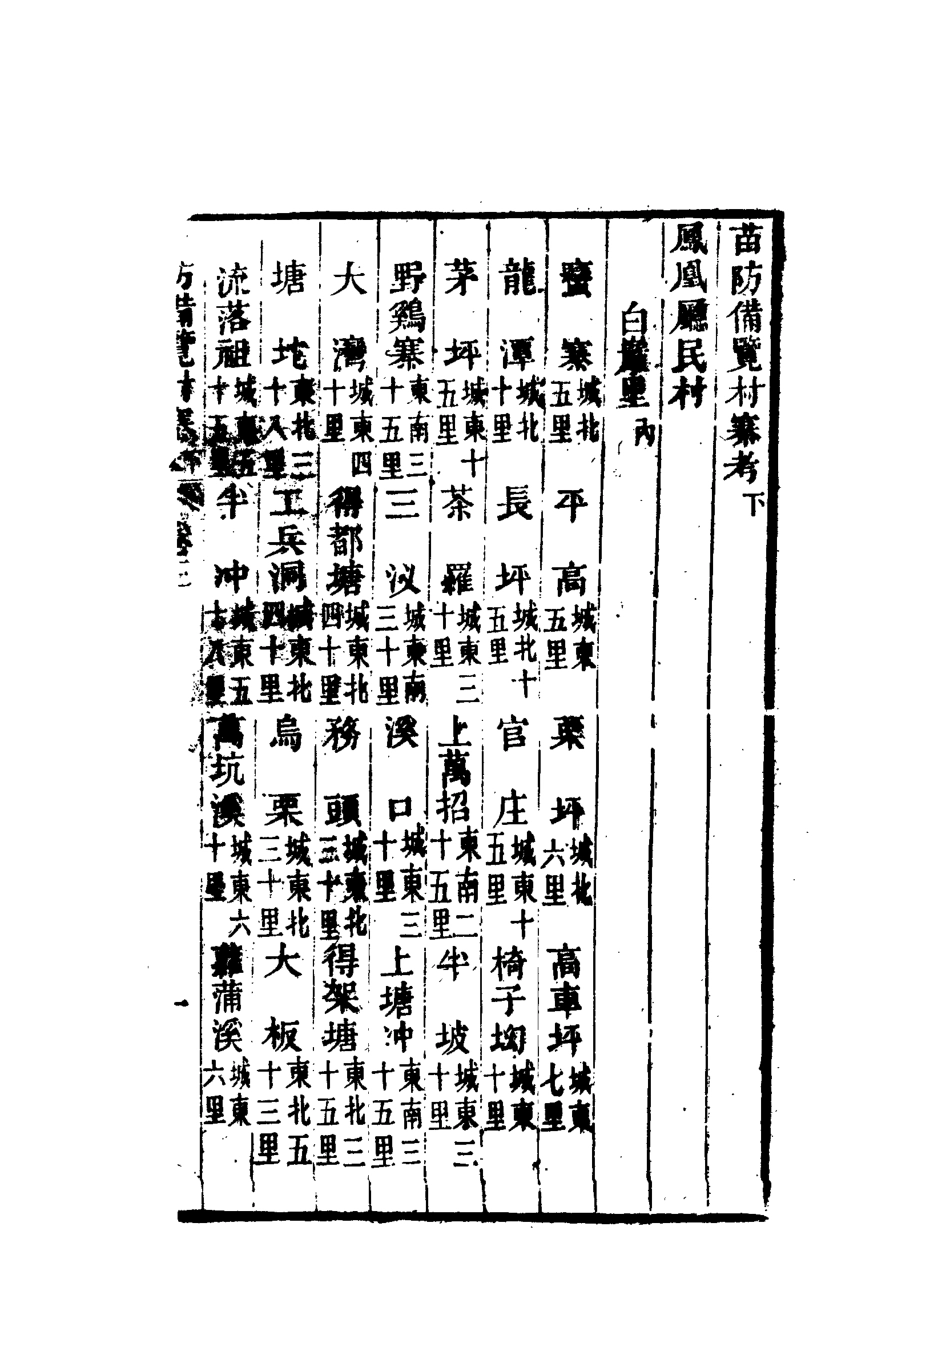 苗防備覽村寨考下
鳳凰廳民村
白巖里內
蠻寨城北五里 平高城東五里 栗坪城北六里 高車坪城東七里
龍潭城北十里 長坪城北十五里 官庄城東十五里 椅子坳城東十里
茅坪城東十五里 茶羅城東三十里 上萬招東南二十五里 牛坡城東三十里
野鷄寨東南三十五里 三汊城東南三十里 溪口城東三十里 上塘冲東南三十五里
大灣城東四十里 得都塘城東北四十里 務頭城東北三十里 得架塘東北三十五里
塘坨東北三十八里 工兵洞城東北四十里 烏栗城東北三十里 大板東北五十三里
流落祖城東五十五里 牛冲城東五十八里 萬坑溪城東六十里 蒲溪城東六里
防備覽村寨 卷三 一